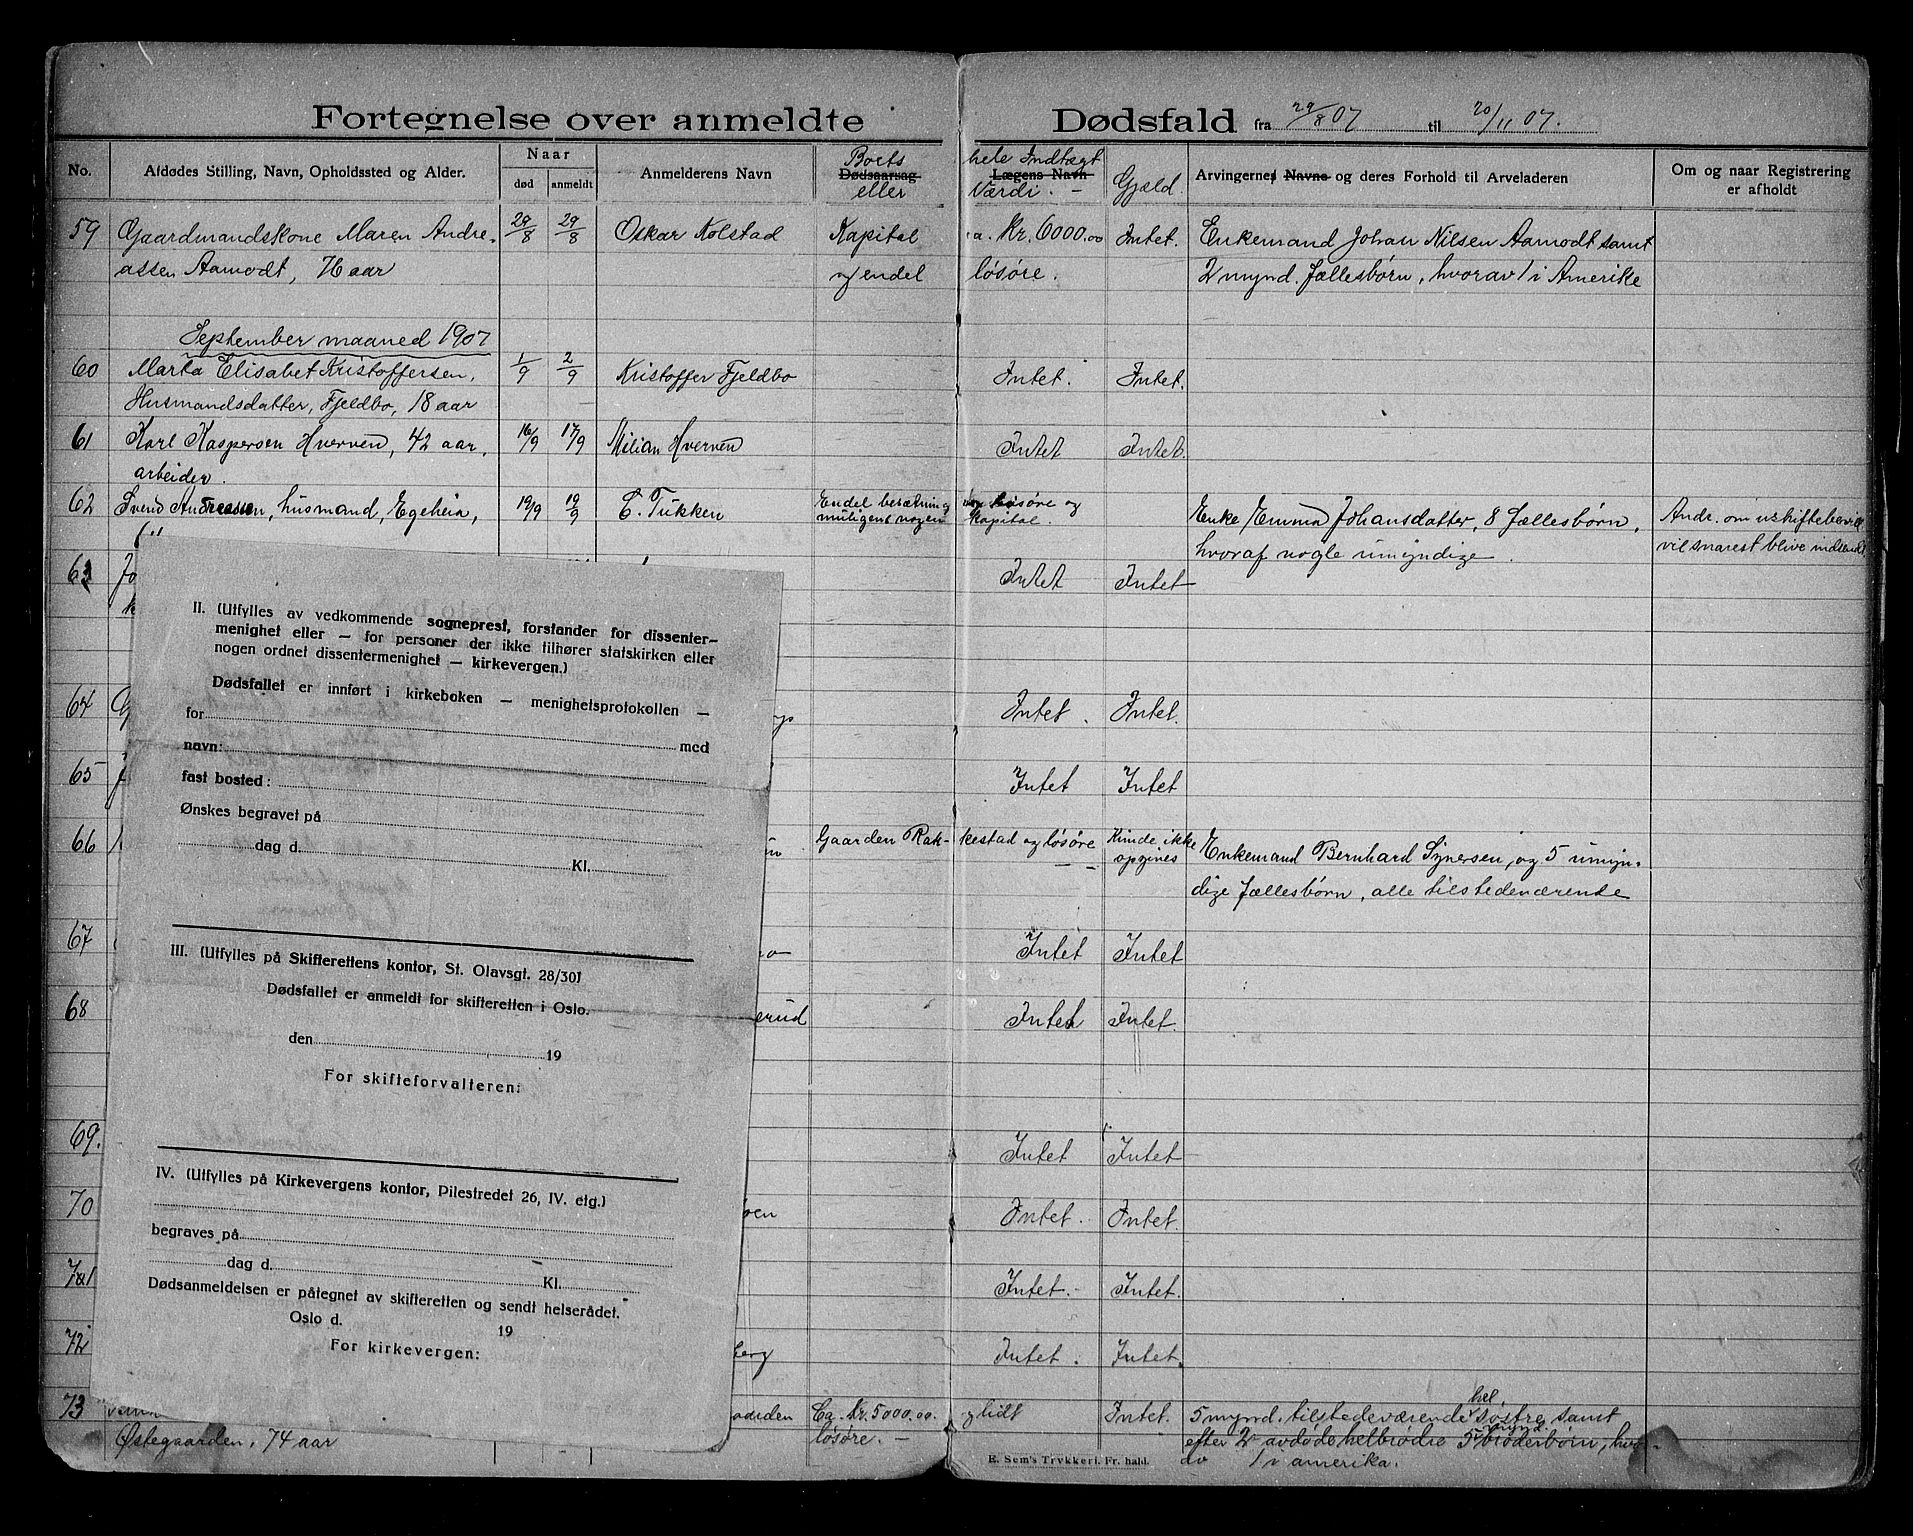 Fortegnelse over anmeldte Dødsfald fra 29/8 07 til 20/11 07.
No. Afdødes Stilling, Navn, Opholdssted og Alder. Naar død anmeldt Anmelderens Navn Boets Dødsaarsag eller hele Indtægt Lægens Navn Værdi. - Gjæld. Arvingernes Navne og deres Forhold til Arveladeren Om og naar Registrering er afholdt
59 Gaardmandskone Maren Andre- 29/8 29/8 Oskar Kolstad Kapital Kr. 6000.00 Intet. Enkemand Johan Nilsen Aamodt samt
assen Aamodt, 76 aar endel løsøre. 2 mynd. fællesbørn, hvorav 1 i Amerika
September maaned 1907
60 Marta Elisabet Kristoffersen, 1/9 2/9 Kristoffer Fjeldbo Intet. Intet.
Husmandsdatter, Fjeldbo, 18 aar
61 Karl Kaspersen Hverven, 42 aar, 16/9 17/9 Milian Hverven Intet Intet.
arbeider.
62 Svend Andreassen, husmand, Egeheia, 19/9 19/9 C. Tukken Endel besætning løsøre og
muligens nogen kapital. Enke Emma Johansdatter, 8 fællesbørn, Andr. om uskiftebevill.
hvoraf nogle umyndige. vil snarest blive indsendt
63 Jo Intet Intet
64 G Intet. Intet.
65 Intet Intet
66 Gaarden Rak- kestad og løsøre Kunde ikke
opgives Enkemand Bernhard Synersen, og 5 umyn-
dige fællesbørn, alle tilstedeværende
67 Intet Intet
68 erud Intet Intet.
69. Intet Intet
70 oen Intet. Intet.
71 Intet. Intet.
72 berg Intet. Intet.
73 Ca. Kr. 5000.00. og lidt Intet. 5 mynd. tilstedeværende hel. søstre, samt
Østegaarden, 74 aar løsøre. - efter 2 avdøde helbrødre 5 mynd. brøderbørn,
1 i amerika.
E. Sem's Trykkeri, Fr.hald.
II. (Utfylles av vedkommende sogneprest, forstander for dissenter-
menighet eller — for personer der ikke tilhører statskirken eller
nogen ordnet dissentermenighet — kirkevergen.)
Dødsfallet er innført i kirkeboken — menighetsprotokollen —
for
navn: med
fast bosted:
Ønskes begravet på
dag d. Kl.
III. (Utfylles på Skifterettens kontor, St. Olavsgt. 28/30)
Dødsfallet er anmeldt for skifteretten i Oslo.
den 19
For skifteforvalteren:
IV. (Utfylles på Kirkevergens kontor, Pilestredet 26, IV. etg.)
begraves på
dag d. Kl.
Dødsanmeldelsen er påtegnet av skifteretten og sendt helserådet.
Oslo d. 19
For kirkevergen: